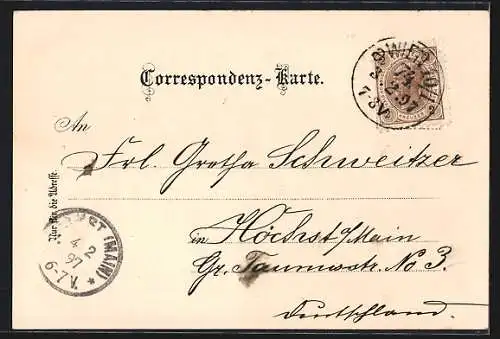 Correspondenz-Karte.
An
Frl. Gretha Schweitzer
in Höchst a/Main
Gr. Taunusstr. No 3.
Deutschland.
Nur für die Adresse
WIEN
97
7-8V
HÖCHST (MAIN) *
4
2
97
6-7V.